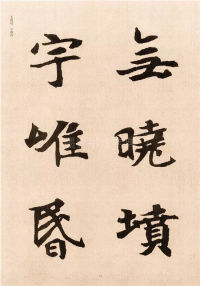 無曉墳
宇唯昏